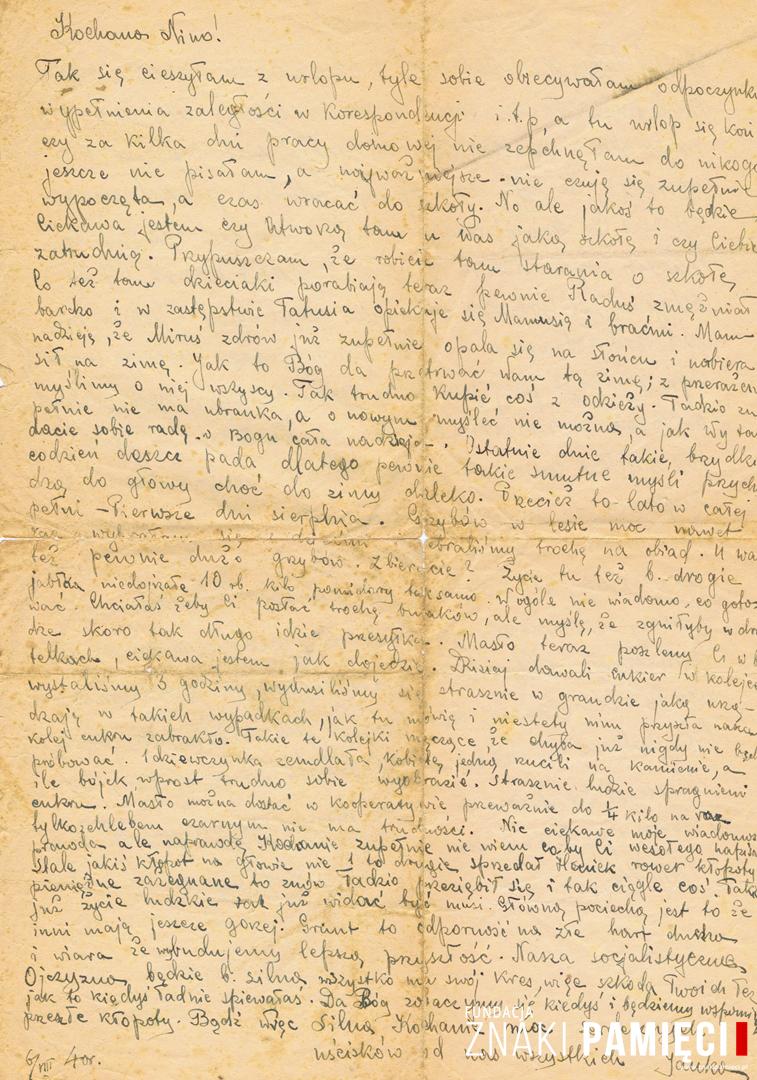 Kochana Nino!
Tak się cieszyłam z urlopu, tyle sobie obiecywałam odpoczynku
wypełnienia zaległości w korespondencji i.t.p, a tu urlop się koń
czy za kilka dni pracy domowej nie zepchnęłam do nikogo
jeszcze nie pisałam, a najważniejsze nie czuję się zupełnie
wypoczęta, a czas wracać do szkoły. No ale jakoś to będzie
Ciekawa jestem czy utworzą tam u Was jaką szkołę i czy Ciebie
zatrudnią. Przypuszczam, że robicie tam starania o szkołę
Co też tam dzieciaki porabiają teraz pewnie Raduś zmężniał
bardzo i w zastępstwie Tatusia opiekuje się Mamusią i braćmi. Mam
nadzieję, że Miruś zdrów już zupełnie opala się na słońcu i nabiera
sił na zimę. Jak to Bóg da przetrwać wam tą zimę; z przerażen
myślimy o niej wszyscy. Tak trudno kupić coś z odzieży. Tadzio zu
pełnie nie ma ubranka, a o nowym myśleć nie można, a jak Wy ta
dacie sobie radę w Bogu cała nadzieja. Ostatnie dnie takie brzydkie
codzień deszcz pada dlatego pewnie takie smutne myśli przych
dzą do głowy choć do zimy daleko. Przecież to lato w całej
pełni - Pierwsze dni sierpnia. Grzybów w lesie moc nawet
raz wybrałam się z zbraliśmy trochę na obiad. U was
też pewnie dużo grzybów. Zbieracie? Życie tu też b. drogie
jabłka niedojrzałe 10 rb. kilo pomidory tak samo. W ogóle nie wiadomo, co goto
wać. Chciałaś żeby Ci posłać trochę buraków, ale myślę, że zgniłyby w dro
dze skoro tak długo idzie przesyłka. Masło teraz poszlemy Ci w
telkach, ciekawa jestem jak dojedzie. Dzisiaj dawali cukier w kolejce
wystaliśmy 3 godziny, wydusiliśmy się strasznie w grandzie jaką urzą-
dzają w takich wypadkach, jak tu mówią i niestety nim przyszła nasza
kolej cukru zabrakło. Takie te kolejki męczące, że chyba już nigdy nie będ
próbować. 1 dziewczynka zemdlała, kobietę jedną rzucili na kamienie, a
ile bójek, wprost trudno sobie wyobrazić. Strasznie ludzie spragnieni
cukru. Masło można dostać w kooperatywie przeważnie do 1/4 kilo na raz
tylko z chlebem czarnym nie ma trudności. Nic ciekawe moje wiadomoś
prawda ale naprawdę Kochanie zupełnie nie wiem co by Ci wesołego napis
Stale jakiś kłopot na głowie nie 1 to drugie sprzedał Heniek rower kłopoty
pieniężne zażegnane to znów Tadzio przeziębił się i tak ciągle coś. Tak
już życie ludzkie już widać być musi. Główną pociechą jest to że
inni mają jeszcze gorzej. Grunt to odporność na złe hart ducha
i wiara że wybudujemy lepszą przyszłość. Nasza socjalistyczna
Ojczyzna będzie b. silna wszystko ma swój kres, więc szkoda Twoich łez
jak to kiedyś ładnie śpiewałaś. Da Bóg zobaczymy się kiedyś i będziemy wspomi
przeszłe kłopoty. Bądź więc silna Kochanie moc serdecznych
uścisków od nas wszystkich Janka
6/VIII 40r.
FUNDACJA
ZNAKI PAMIĘCI